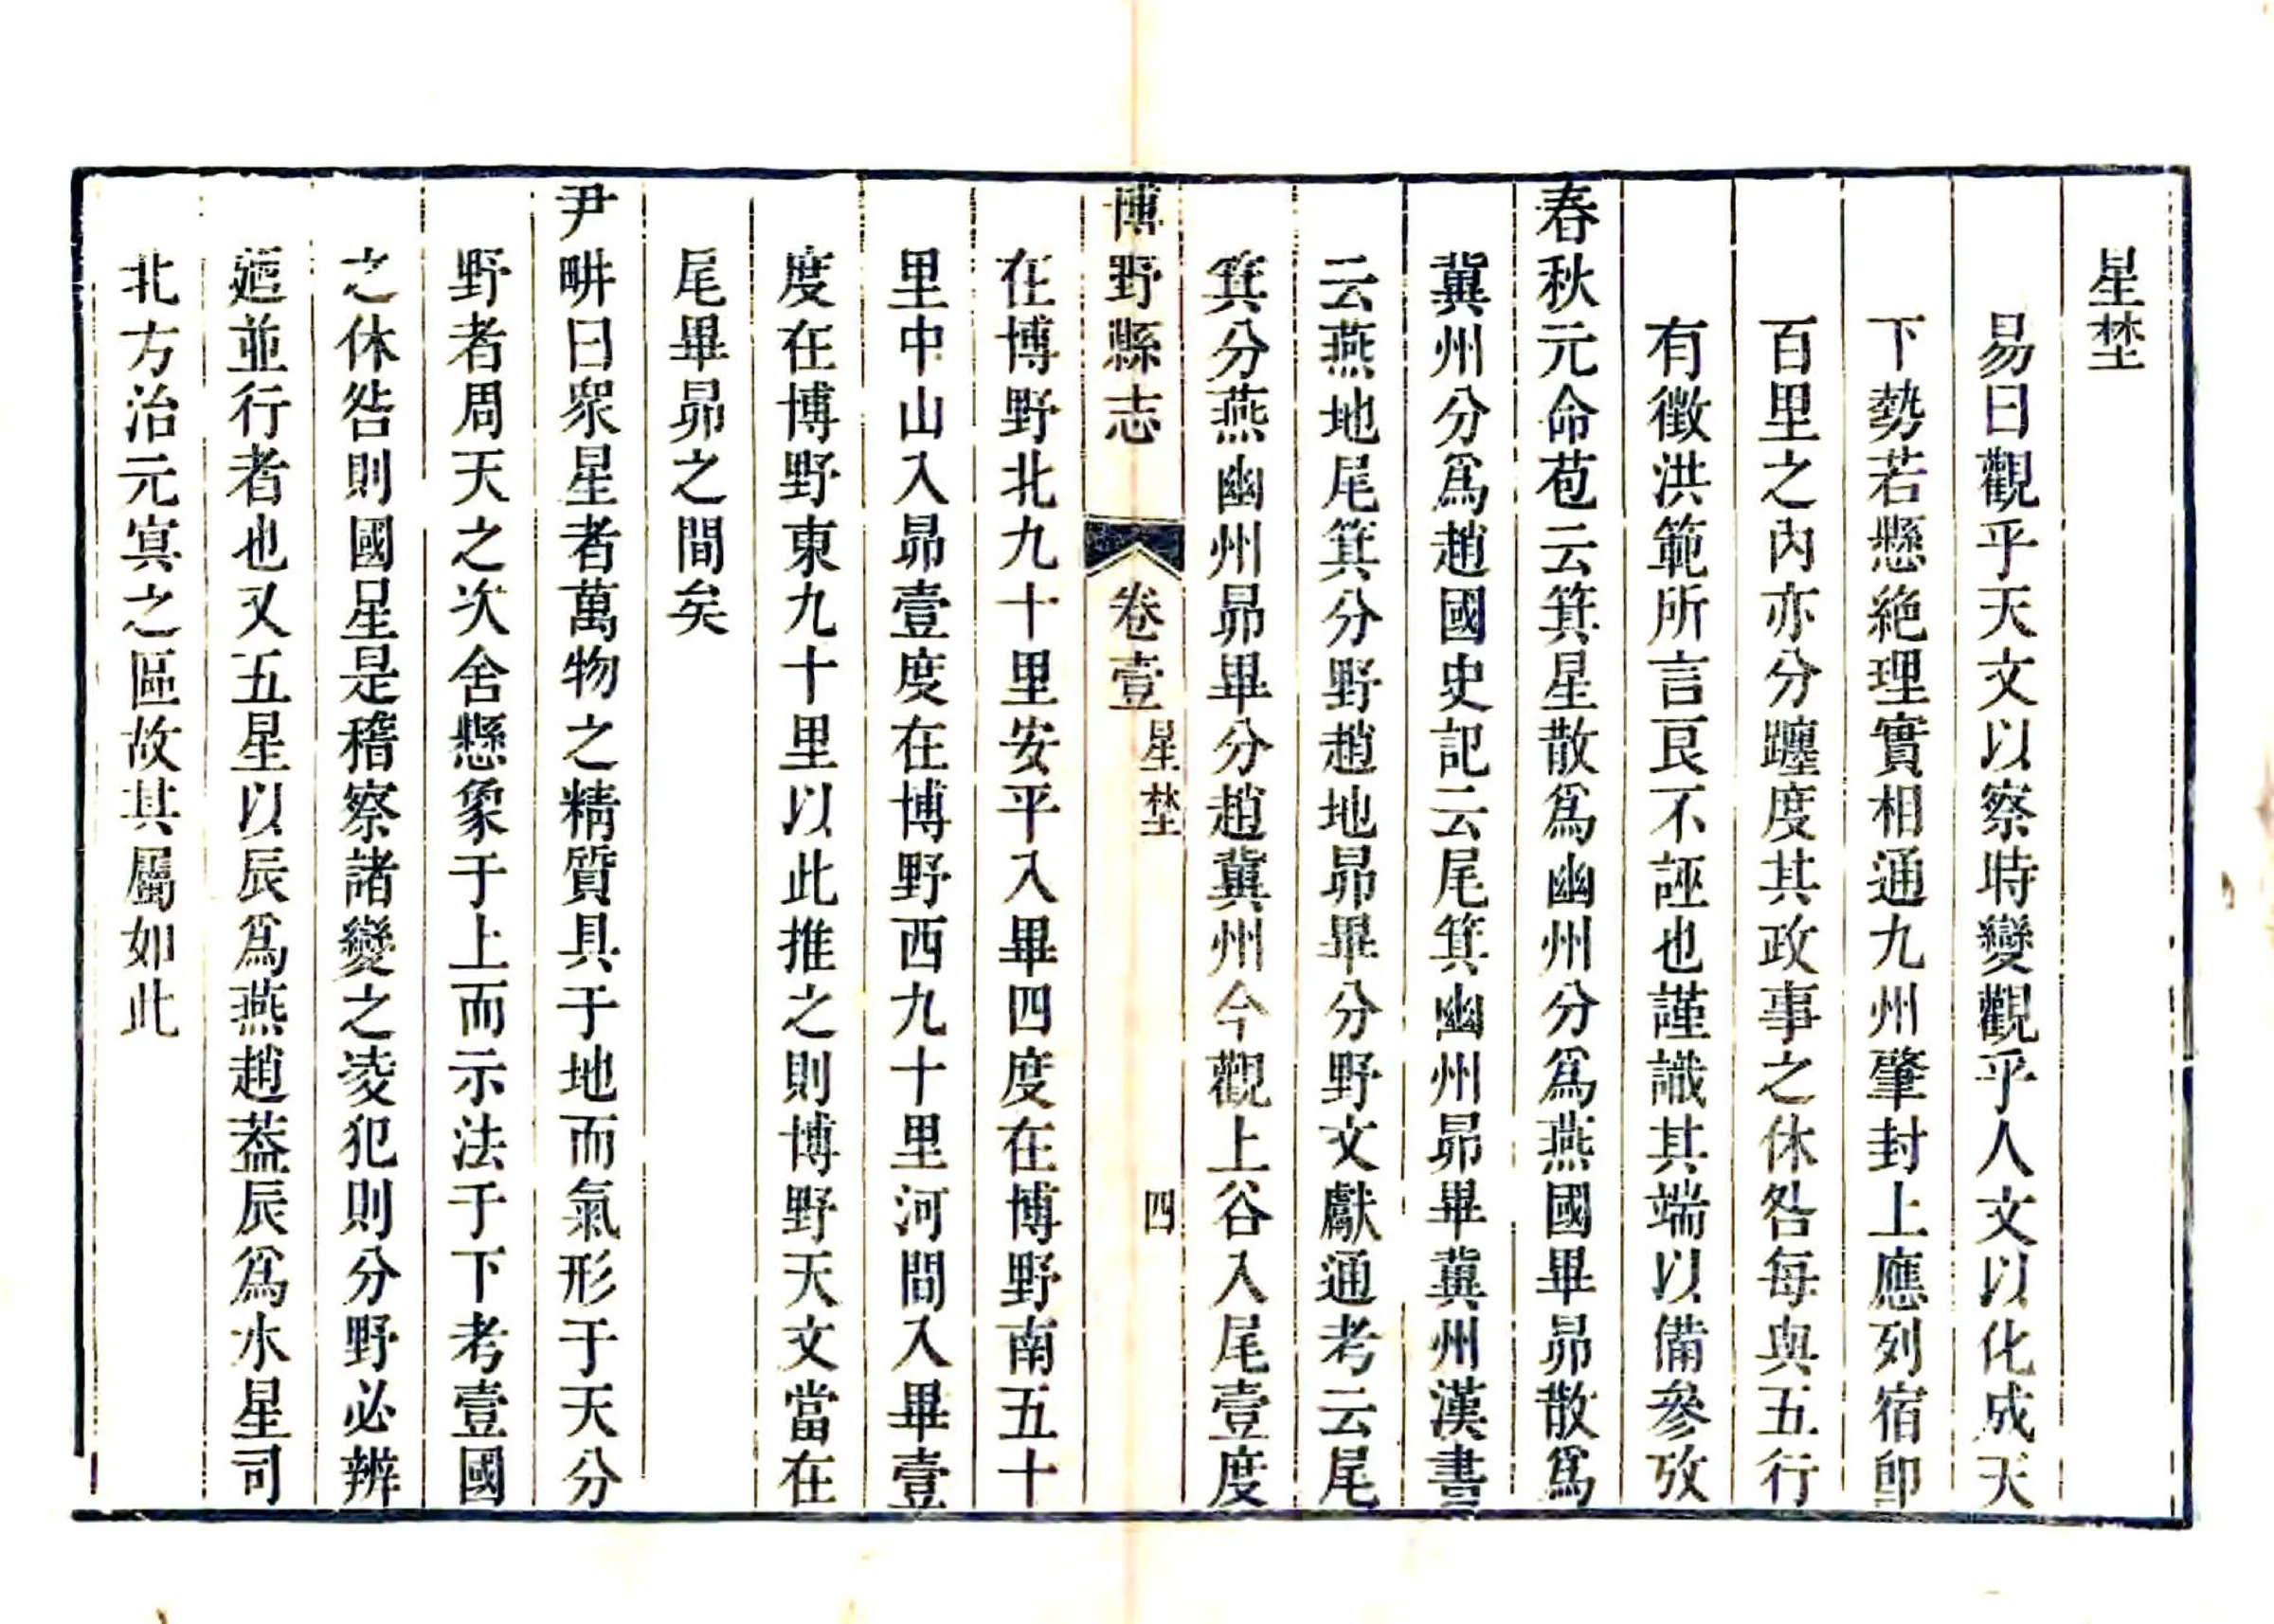 星埜
易曰觀乎天文以察時變觀乎人文以化成天
下勢若懸絶理實相通九州肇封上應列宿卽
百里之內亦分躔度其政事之休咎每與五行
有徵洪範所言良不誣也謹識其端以備參攷
春秋元命苞云箕星散爲幽州分爲燕國畢昴散爲
冀州分爲趙國史記云尾箕幽州昴畢冀州漢書
云燕地尾箕分野趙地昴畢分野文獻通考云尾
箕分燕幽州昴畢分趙冀州今觀上谷入尾壹度
博野縣志 卷壹 星埜 四
在博野北九十里安平入畢四度在博野南五十
里中山入昴壹度在博野西九十里河間入畢壹
度在博野東九十里以此推之則博野天文當在
尾畢昴之間矣
尹畊曰衆星者萬物之精質具于地而氣形于天分
野者周天之次舍懸象于上而示法于下考壹國
之休咎則國星是稽察諸變之凌犯則分野必辨
廵並行者也又五星以辰爲燕趙葢辰爲水星司
北方治元冥之區故其屬如此